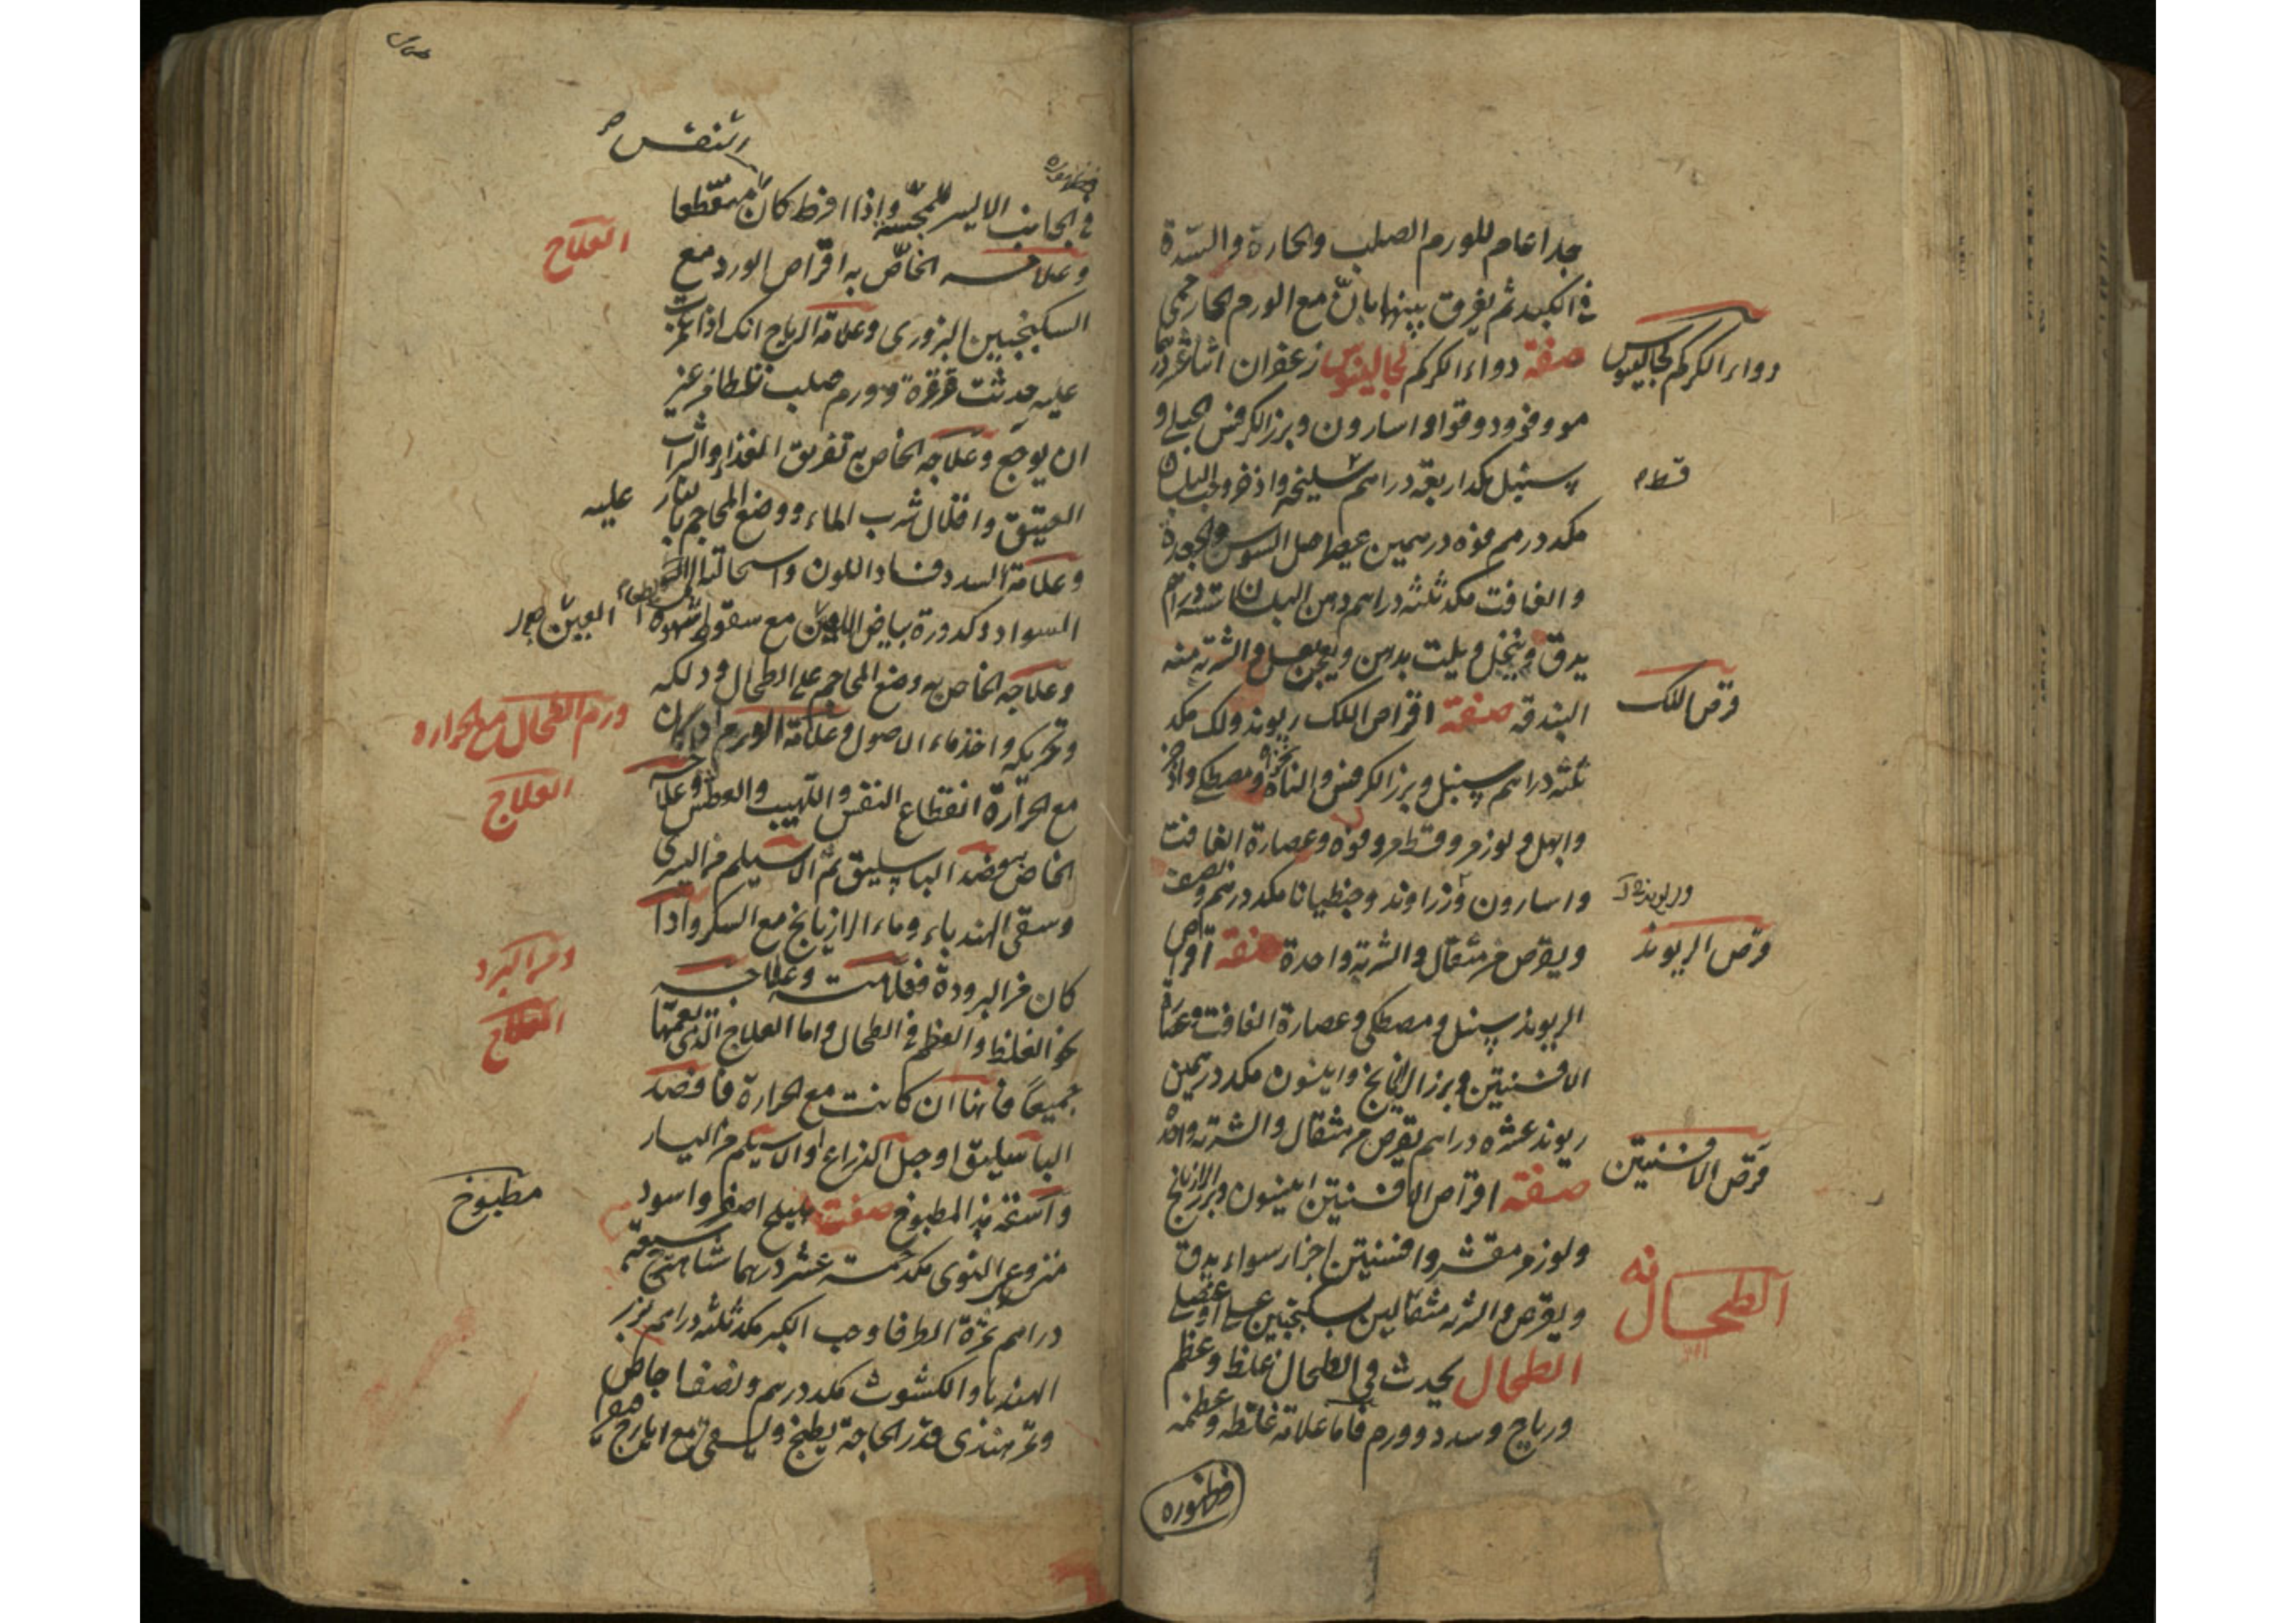 جدا عام للورم الصلب والحارة والسدة
في الكبد ثم يفرق بينها بانّ مع الورم الحار حمى
دواء الكركم لجالينوس
صفة دواء الكركم لجالينوس زعفران اثنا عشر درهما
مو وفو ودوقوا واسارون وبزر الكرفس الجبلي و
سنبل مكد اربعة دراهم سليخة واذخر وحب البلسان
قسط
مكد درهم فوه درهمين عيدان اصل السوس والجعدة
والغافت مكد ثلثة دراهم دهن البلسان ستة دراهم
يدق وينخل ويلت بدهن ويعجن بعسل والشربة منه
قرص اللك
البندقه صفة اقراص اللك ريوند ولك مكد
ثلثة دراهم سنبل وبزر الكرفس والنانخواه ومصطكى واذخر
وابهل ولوز مر وقسط مر وفوه وعصارة الغافت
واسارون وزراوند وجنطيانا مكد درهم ونصف
قرص الريوند
ويقرص من مثقال والشربة واحدة صفة اقراص
الريوند سنبل ومصطكى وعصارة الغافت وعصارة
الافسنتين وبزر الرازيانج وانيسون مكد درهمين
ريوند عشرة دراهم يقرص من مثقال والشربة واحدة
قرص الافسنتين
صفة اقراص الافسنتين انيسون وبزر الرازيانج
ولوز مر مقشر وافسنتين اجزاء سواء يدق
الطحال
ويقرص والشربة مثقالين بسكنجبين عسلى او عنصلى
الطحال يحدث في الطحال غلظ وعظم
ورياح وسدد وورم فاما علامة غلظه وعظمه
فظهوره
التنفس
في الجانب الايسر للمجسّة واذا افرط كان متقطعا
العلاج
وعلاجه الخاصّ به اقراص الورد مع
السكنجبين البزورى وعلامة الرياح انك اذا غمزت
عليه حدثت قرقرة وورم صلب تلطا من غير
ان يوجع وعلاجه الخاص به تفريق الغذاء والشراب
العتيق واقلال شرب الماء ووضع المحاجم بالنار عليه
وعلامة السدد فساد اللون واستحالته الى
السواد وكدورة بياض العين مع سقوط شهوة
وعلاجه الخاص به وضع المحاجم على الطحال ودلكه
ورم الطحال مع الحرارة
وتحريكه واخذ ماء الاصول وعلامة الورم اذا كان
العلاج
مع الحرارة انقطاع النفس واللهيب والعطش وعلاجه
الخاص به فصد الباسليق ثم الاسيلم من اليسرى
وسقى الهندباء وماء الرازيانج مع السكر واذا
ومن البرد
كان من البرودة فعلامته وعلاجه
العلاج
نحو الغلظ والعظم في الطحال واما العلاج الذى يعمّها
جميعًا فانها ان كانت مع الحرارة فافصد
الباسليق او حبل الذراع او الاسيلم من اليسار
مطبوخ
واسقه بهذا المطبوخ صفته هليلج اصفر واسود
منزوعى النوى مكد خمسة عشر درهما شاهترج سبعة
دراهم ثمرة الطرفا وحب الكبر مكد ثلثة دراهم بزر
الهندبا والكشوث مكد درهم ونصف اجاص
وتمر هندى قدر الحاجة يطبخ ويسقى مع ايارج فيقرا